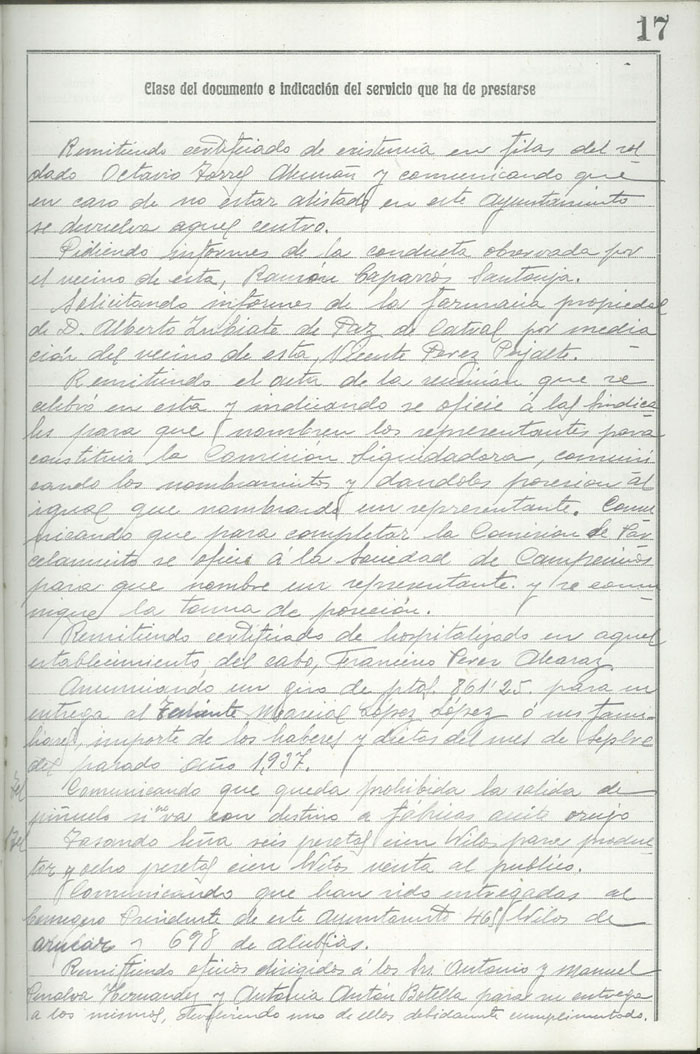 17
Clase del documento e indicación del servicio que ha de prestarse
Remitiendo certificado de existencia en filas del sol
dado Octavio Torres Alemañ y comunicando que
en caso de no estar alistado en este Ayuntamiento
se devuelva aquel centro.
Pidiendo informes de la conducta observada por
el vecino de esta, Ramon Caparrós Santonja.
Solicitando informes de la farmacia propiedad
de D. Alberto de Paz de Catral por media
ción del vecino de esta, Vicente Perez
Remitiendo el acta de la reunión que se
celebró en esta y indicando se oficie á las Sindica
les para que nombren los representantes para
constituir la Comision Liquidadora, comuni
cando los nombramientos y dandoles posesion al
igual que nombrando un representante. Comu
nicando que para completar la Comision de Par
celamiento se oficie á la Sociedad de Campesinos
para que nombre un representante y se comu
nique la toma de posesión.
Remitiendo certificado de hospitalizado en aquel
establecimiento del cabo, Francisco Perez Alcaraz
Anunciando un giro de ptas. 861'25 para su
entrega al Teniente Marcial López López ó sus fami-
liares, importe de los haberes y dietas del mes de Sepbre
del pasado año 1,937.
Comunicando que queda prohibida la salida de
piñuelo si no va con destino a fábricas aceite orujo
Tasando leña seis pesetas cien kilos para produc
tor y ocho pesetas cien kilos venta al publico.
Comunicando que han sido entregadas al
Consegero Presidente de este Ayuntamiento 468 kilos de
azucar y 698 de alubias.
Remitiendo oficios dirigidos á los Srs Antonio y Manuel
Penalva Hernandez y Antonia Antón Botella para su entrega
a los mismos, devolviendo uno de ellos debidamente cumplimentado.